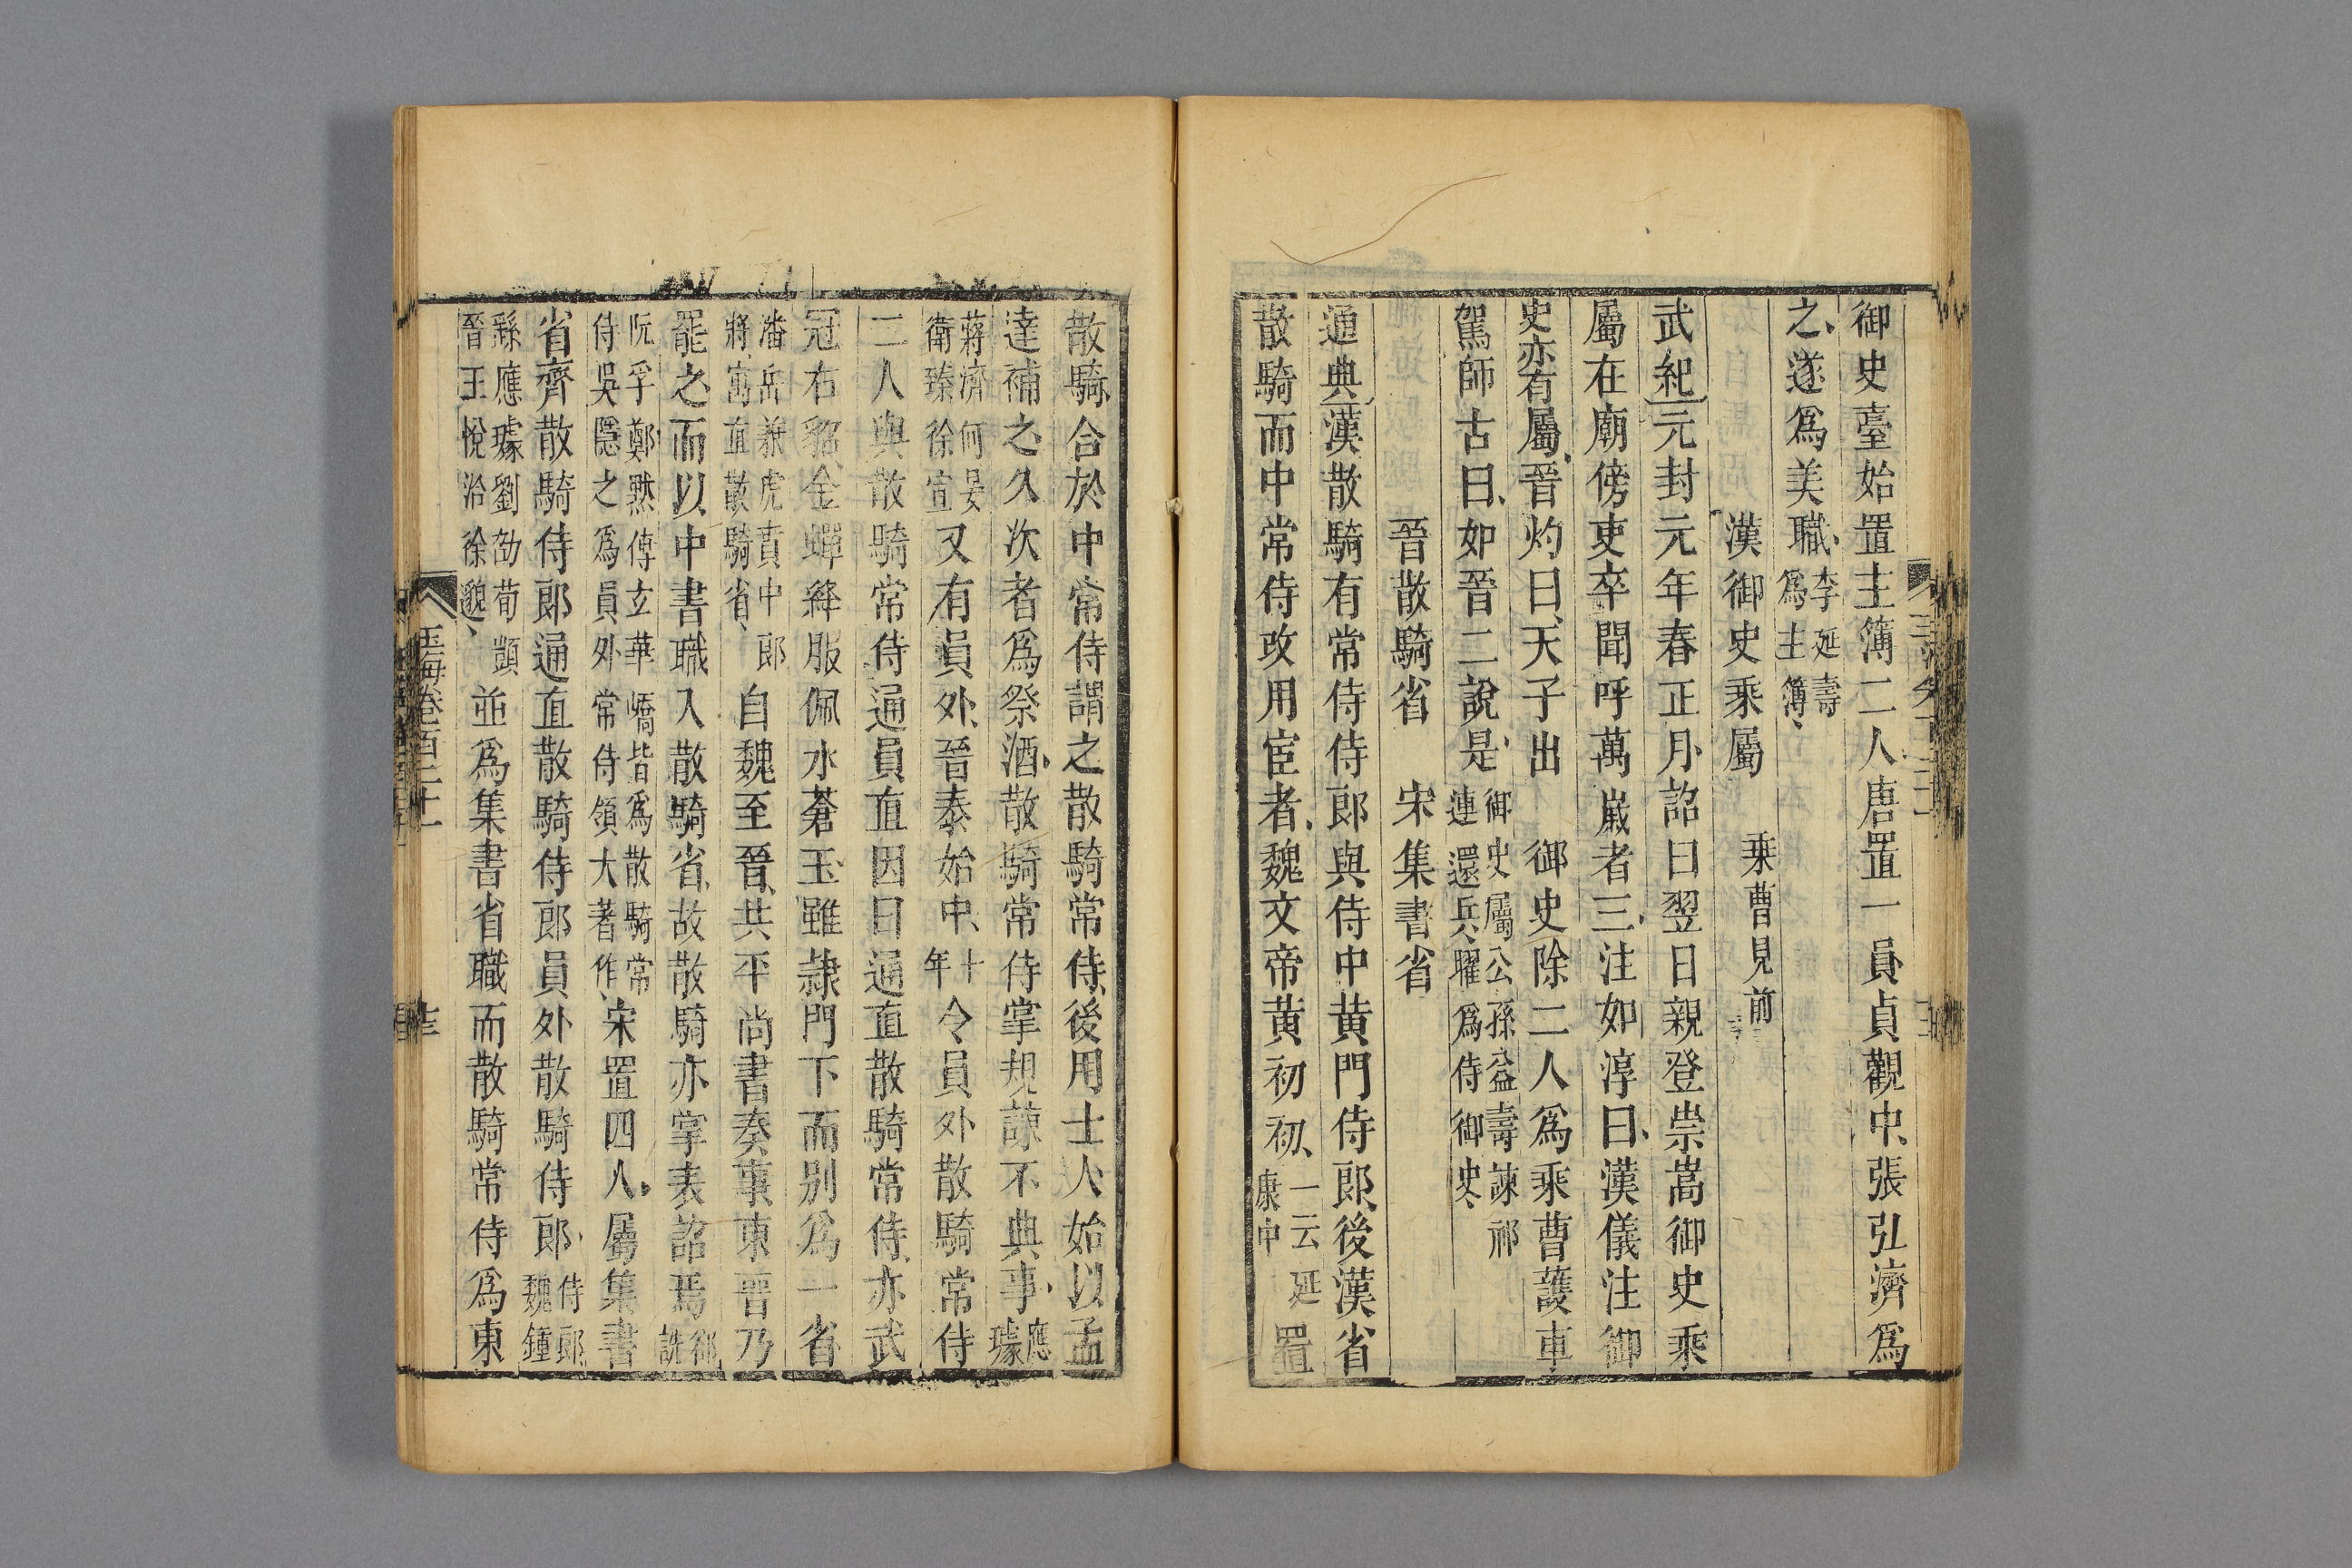 御史臺始置主簿二人唐置一員貞觀中張弘濟爲
之遂爲美職李延壽爲主簿
漢御史乘屬 乗曹見前
武紀元封元年春正月詔曰翌日親登崇嵩御史乘
屬在廟傍吏卒聞呼萬嵗者三注如淳曰漢儀注御
史亦有屬晉灼曰天子出 御史除二人爲乘曹護車
駕師古曰如晉二說是御史屬公孫益壽諫祁連還兵擢爲侍御史
晉散騎省 宋集書省
通典漢散騎有常侍侍郎與侍中黄門侍郎後漢省
散騎而中常侍改用宦者魏文帝黄初初一云延康中置
散騎合於中常侍謂之散騎常侍後用士人始以孟
達補之久次者爲祭酒散騎常侍掌規諫不典事應璩
蔣濟何晏衛臻徐宣又有員外晉泰始中十年令員外散騎常侍
二人與散騎常侍通員直因曰通直散騎常侍亦武
冠右貂金蟬絳服佩水蒼玉雖隷門下而别爲一省
潘岳兼虎賁中郎將寓直散騎省自魏至晉共平尚書奏事東晉乃
罷之而以中書職入散騎省故散騎亦掌表詔焉郤詵
阮孚鄭黙傅玄華嶠皆爲散騎常侍吳隱之爲員外常侍領大著作宋置四人屬集書
省齊散騎侍郎通直散騎侍郎員外散騎侍郎侍郎魏鍾
繇應璩劉劭荀顗晉王悅洽徐邈並爲集書省職而散騎常侍爲東
玉海卷百二十一